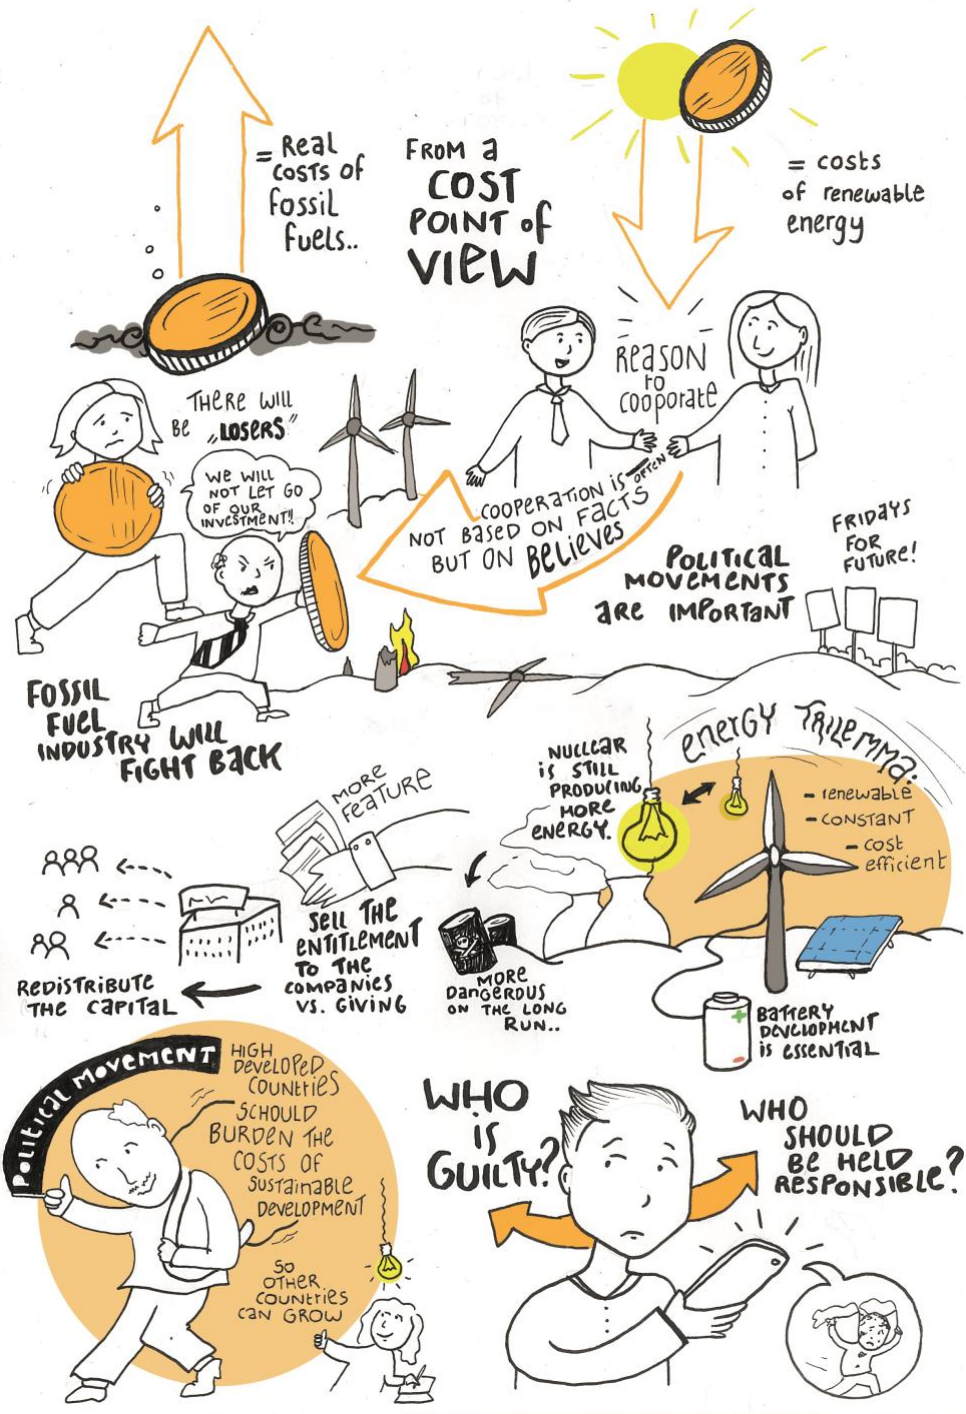 = Real
costs of
fossil
fuels..
FROM a
COST
POINT of
VIEW
= costs
of renewable
energy
REASON
to
cooporate
THERE WILL
BE „LOSERS"
WE WILL
NOT LET GO
OF OUR
INVESTMENT!!
COOPERATION IS OFTEN
NOT BASED ON FACTS
BUT ON BELIEVES
POLITICAL
MOVEMENTS
are IMPORTANT
FRIDAYS
FOR
FUTURE!
FOSSIL
FUEL
INDUSTRY WILL
FIGHT BACK
NUCLEAR
is STILL
PRODUCING
MORE
ENERGY.
ENERGY TRILEMMA:
- renewable
- CONSTANT
- cost
efficient
MORE
FEATURE
SELL THE
ENTITLEMENT
TO THE
COMPANIES
VS. GIVING
REDISTRIBUTE
THE CAPITAL
MORE
DANGEROUS
ON THE LONG
RUN..
+
-
BATTERY
DEVELOPMENT
is ESSENTIAL
POLITICAL MOVEMENT
HIGH
DEVELOPED
COUNTRIES
SCHOULD
BURDEN THE
COSTS OF
SUSTAINABLE
DEVELOPMENT
SO
OTHER
COUNTRIES
CAN GROW
WHO
IS
GUILTY?
WHO
SHOULD
BE HELD
RESPONSIBLE?